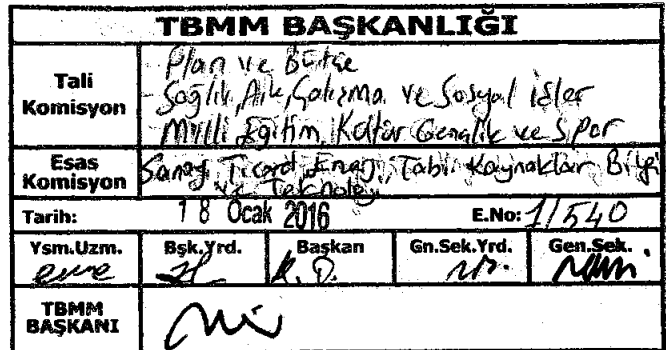 TBMM BAŞKANLIĞI
Tali Komisyon
Plan ve Bütçe
Sağlık, Aile, Çalışma ve Sosyal İşler
Milli Eğitim, Kültür Gençlik ve Spor
Esas Komisyon
Sanayi Ticaret Enerji, Tabii Kaynaklar Bilgi
ve Teknoloji
Tarih: 18 Ocak 2016 E.No: 1/540
Ysm.Uzm. Bşk.Yrd. Başkan Gn.Sek.Yrd. Gen.Sek.
TBMM BAŞKANI